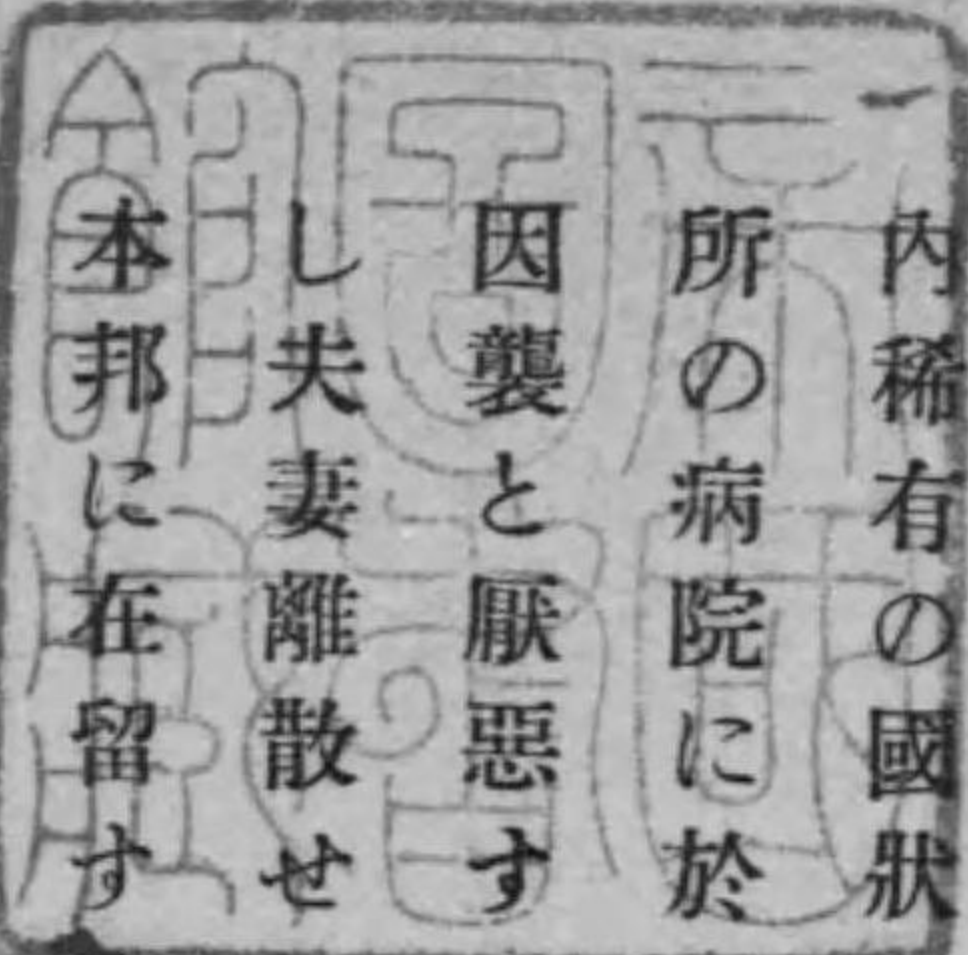 內稀有の國狀
所の病院に於
因襲と厭惡す
し夫妻離散せ
本邦に在留す